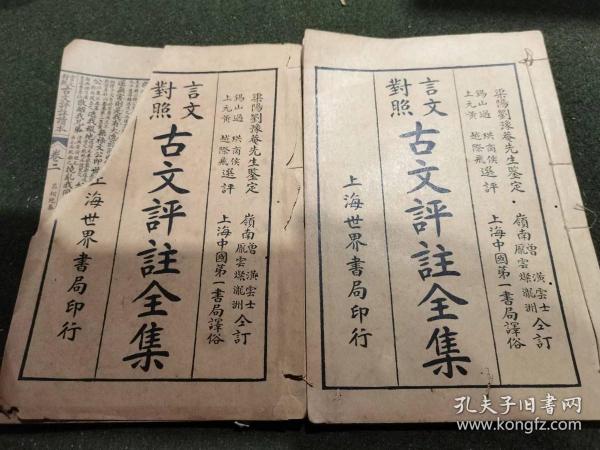 梁陽劉豫菴先生鑒定
錫山過 珙商侯
上元黃 越際飛
選評
言文
對照
古文評註全集
嶺南
曾 潢雲士
鳳雲燦瀧洲
仝訂
上海中國第一書局譯俗
上海世界書局印行
梁陽劉豫菴先生鑒定
錫山過 珙商侯
上元黃 越際飛
選評
言文
對照
古文評註全集
嶺南
曾 潢雲士
鳳雲燦瀧洲
仝訂
上海中國第一書局譯俗
上海世界書局印行
卷二
孔夫子旧书网
www.kongfz.com